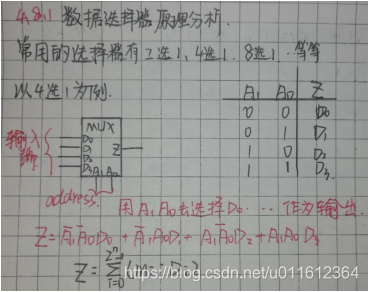 4.8.1 数据选择器原理分析.
常用的选择器有2选1、4选1、8选1…等等
以4选1为例.
A₁ A₀ Z
0 0 D₀
0 1 D₁
1 0 D₂
1 1 D₃.
输入端
MUX
D₀
D₁
D₂
D₃
Z
A₁A₀
address.
用A₁A₀去选择D₀…作为输出.
Z = A̅₁A̅₀D₀ + A̅₁A₀D₁ + A₁A̅₀D₂ + A₁A₀D₃
Z = Σ i=0
https://blog.csdn.net/u011612364